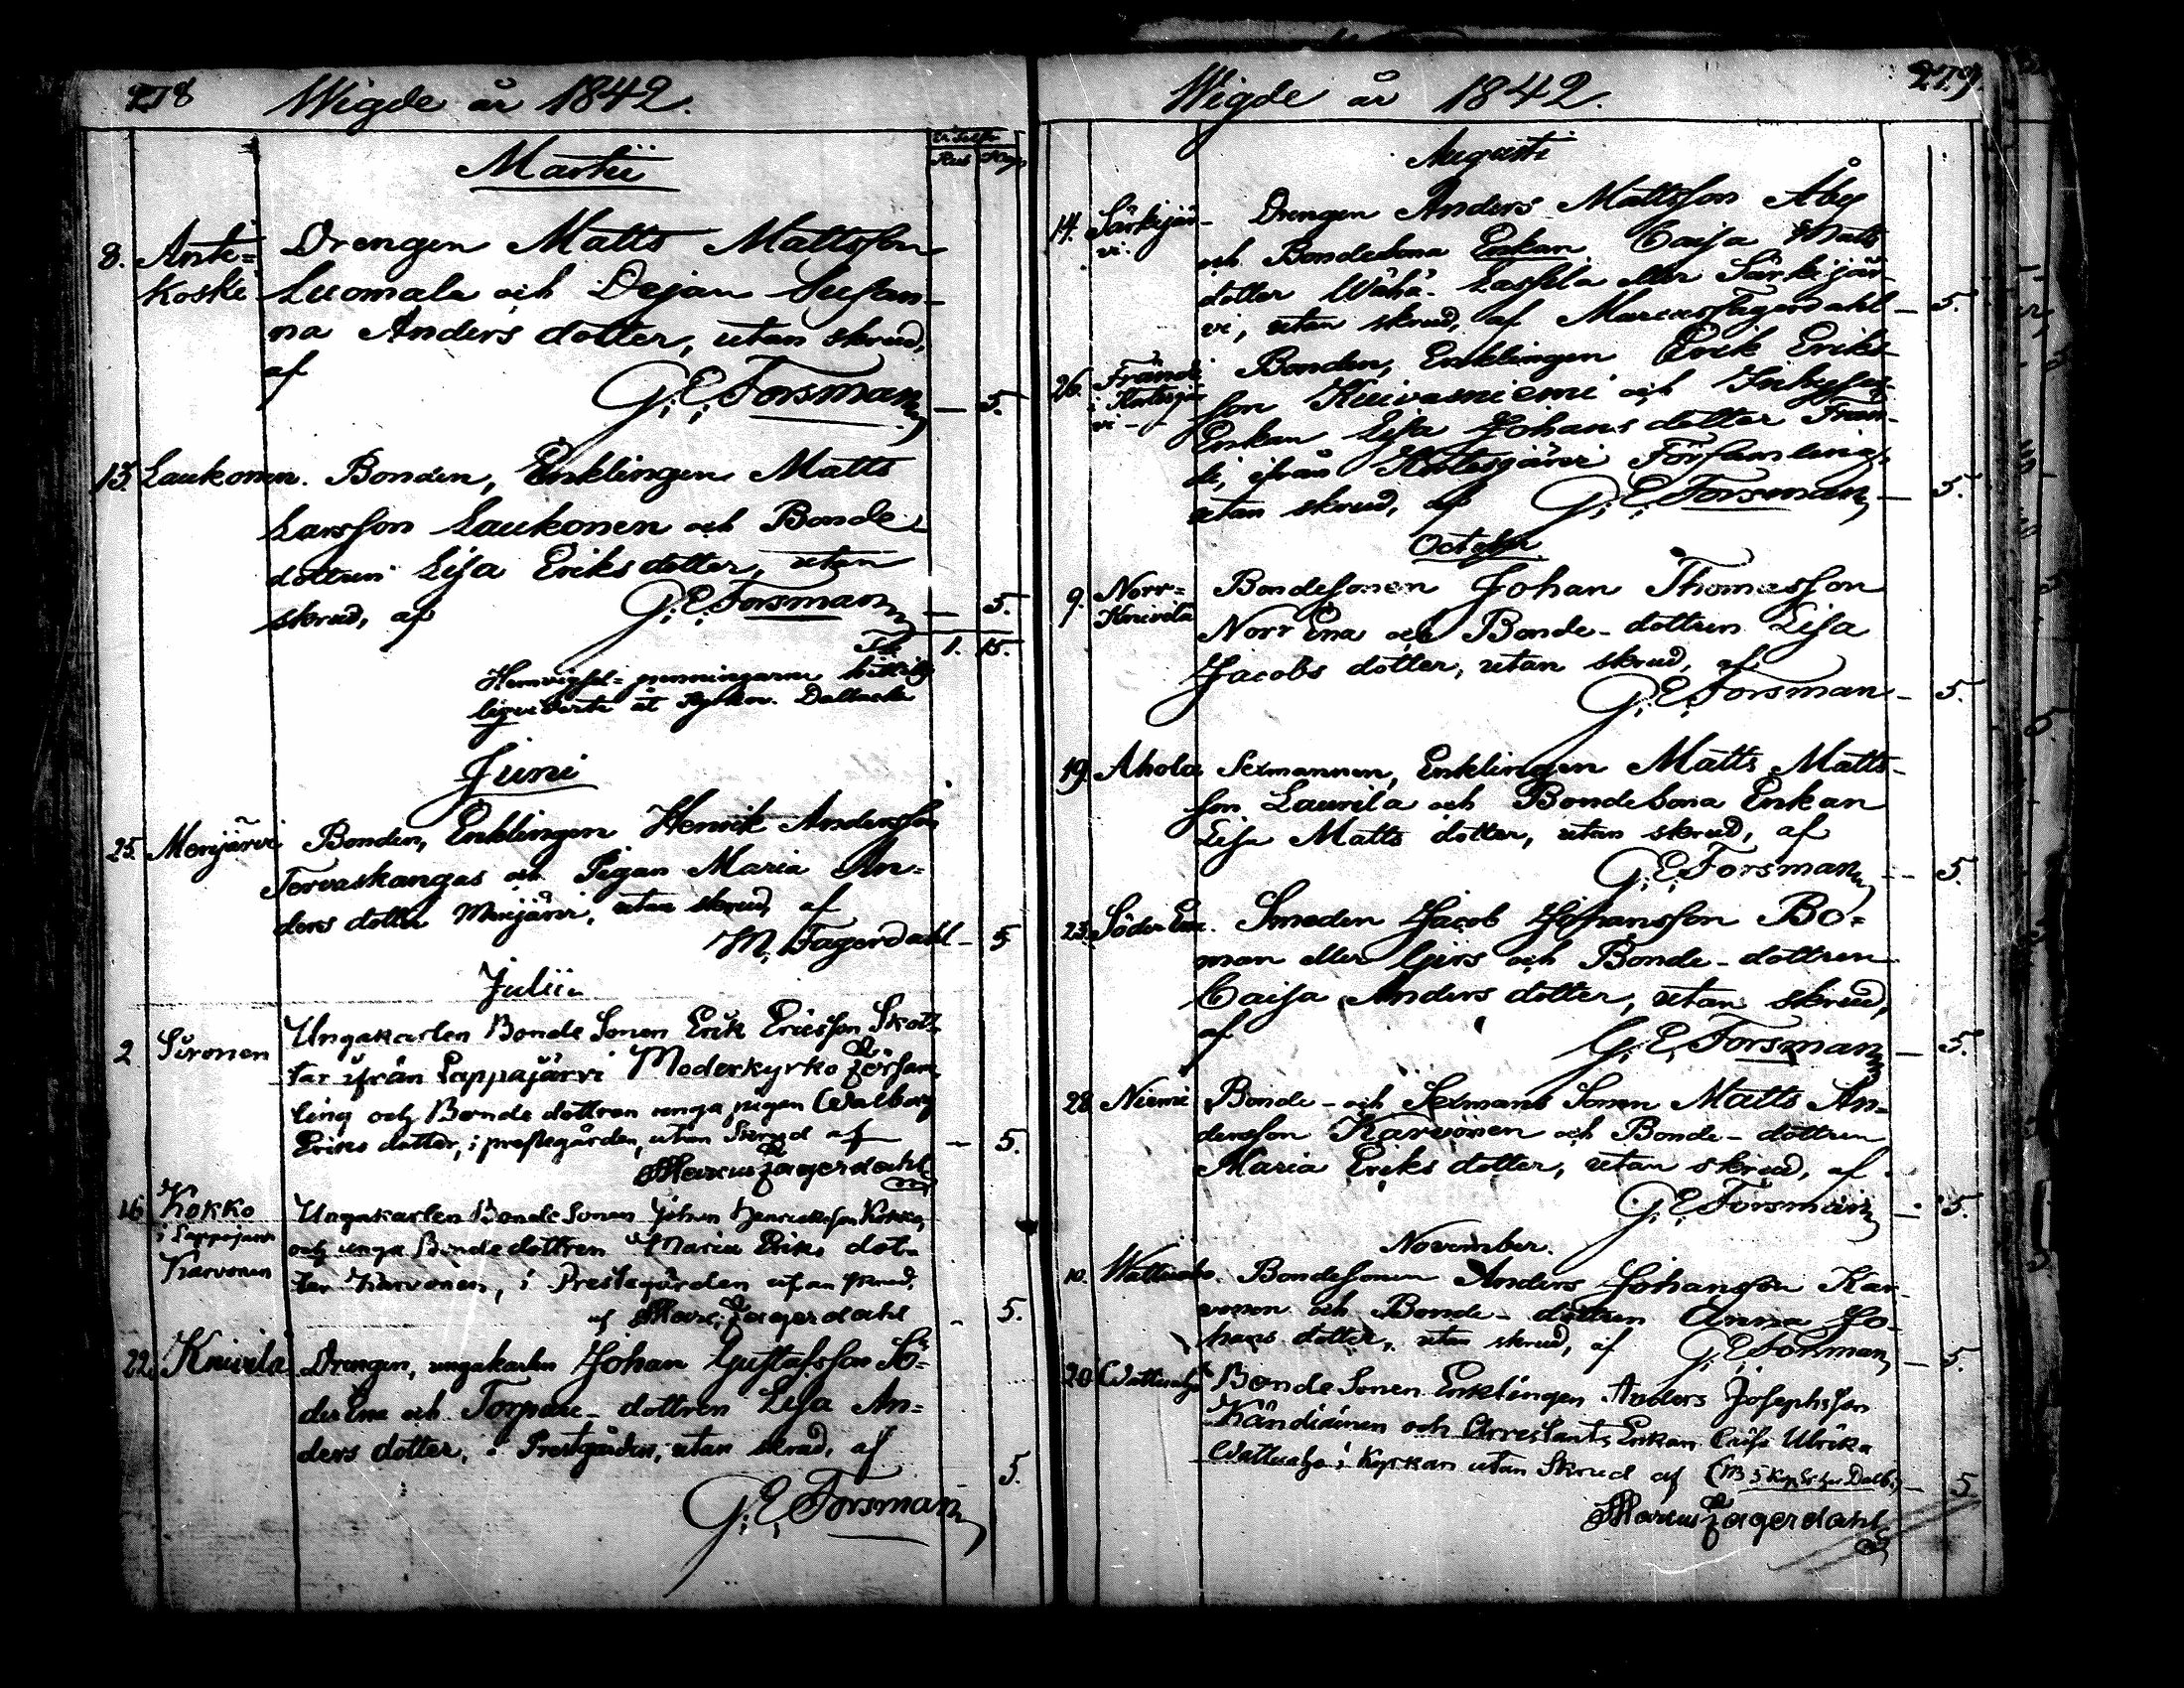 278 Wigde år 1842.
Martii
8. Ante= Drengen Matts Mattsson
Koski Luomala och Dejan Susan-
na Anders dotter, utan skrud,
af
G. E. Forsman — 5.
13. Laukonen. Bonden, Enklingen Matts
Larsson Laukonen och Bonde
dottren Lisa Eriks dotter, utan
skrud, af G. E. Forsman — 5.
1. 15.
Hemvigsel-penningarne
åt Kyrkan.
Juni
25. Menjärvi Bonden, Enklingen Henrik Andersson
Tervaskangas och Pigan Maria An=
ders dotter Menjärvi, utan skrud, af
M. Fagerdahl — 5.
Julii
2 Sironen Ungakarlen Bonde Sonen Erik Ericsson Skot-
tar ifrån Lappajärvi Moderkyrko Försam-
ling och Bonde dottren unga pigan Walborg
Erics dotter, i prestegården, utan Skrud af — 5.
Marcus Fagerdahl
16 Kokko Ungakarlen Bonde Sonen Johan Henricksson Kokko,
i Lappajärvi och unga Bonde dottren Maria Eriks dot-
Karvonen ter Karvonen, i Prestegården utan skrud,
af Marc. Fagerdahl - 5.
22. Knivilä Drengen, ungakarlen Johan Gustafsson Sö-
der Ena och Torpare-dottren Lisa An=
ders dotter, i Prestgården, utan skrud, af
5.
G. E. Forsman
Wigde år 1842. 279.
Augusti
14. Särkijär- Drengen Anders Mattsson Åby
vi. och Bondesona Enkan Caisa Matts
dotter Wähä-Lassila eller Särkijär-
vi, utan skrud, af Marcus Fagerdahl — 5.
26. Frändi Bonden, Enklingen Erik Eriks-
i Kortesjär son Kuivasniemi och
vi - - Enkan Lisa Johans dotter Frän-
di, ifrån Kortesjärvi Församling,
utan skrud, af G. E. Forsman — 5.
October
9. Norr= Bondesonen Johan Thomasson
Knivilä Norr Ena och Bonde-dottren Lisa
Jacobs dotter, utan skrud, af
G. E. Forsman — 5.
19. Ahola Sexmannen, Enklingen Matts Matts-
son Laurila och Bondesona Enkan
Lisa Matts dotter, utan skrud, af
G. E. Forsman — 5.
23. Söder Ena. Smeden Jacob Johansson Bo=
man eller Girs och Bonde-dottren
Caisa Anders dotter, utan skrud,
af
G. E. Forsman — 5.
28. Niemi Bonde- och Sexmans Sonen Matts An=
dersson Karvonen och Bonde-dottren
Maria Eriks dotter, utan skrud, af
G. E. Forsman — 5.
November.
10. Wattuaho. Bondesonen Anders Johansson Kar-
vonen och Bonde-dottren Anna Jo-
hans dotter, utan skrud, af G. E. Forsman — 5.
20 Wattuaho Bonde Sonen Enklingen Anders Josephsson
Kändiäinen och Arrestants Enkan Caisa Ulrika
Wattuaho i Kyrkan utan Skrud af — 5
Marcus Fagerdahl